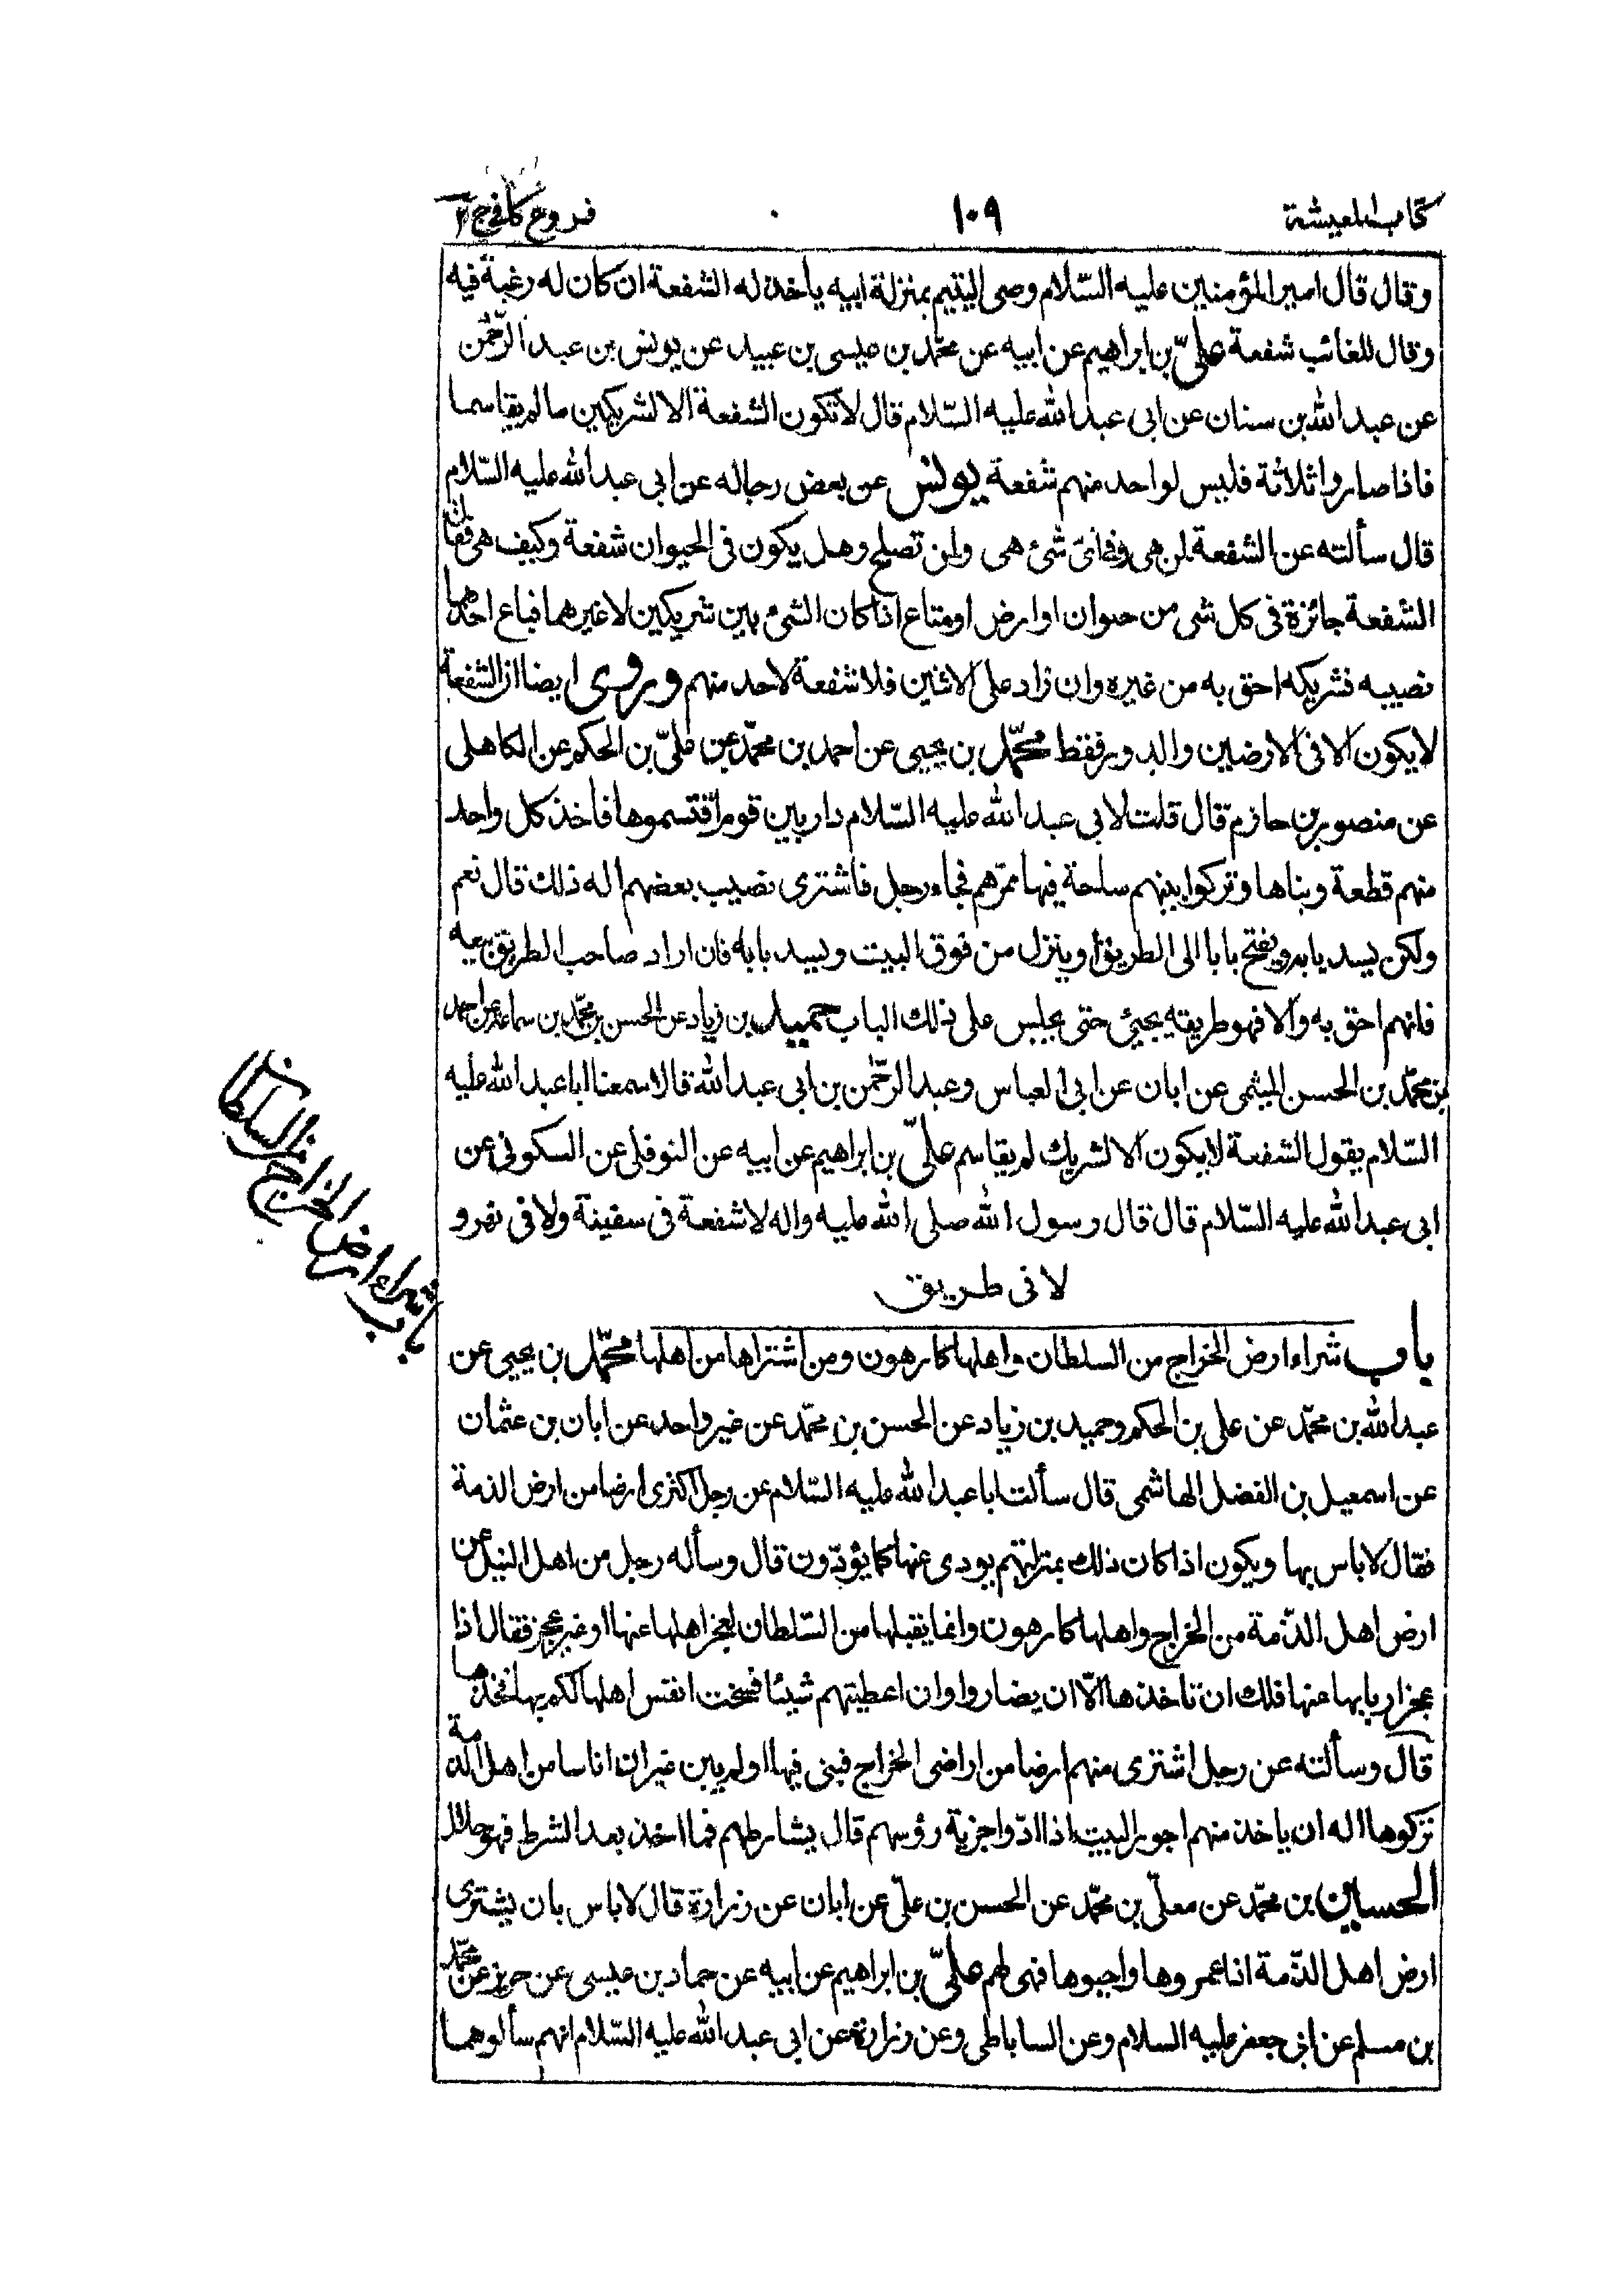 كتاب المعيشة ١٠٩ فروع كافي ج ٢
وقال قال امير المؤمنين عليه السّلام وصى اليتيم بمنزلة ابيه يأخذ له الشفعة ان كان له رغبة فيه
وقال للغائب شفعة علىّ بن ابراهيم عن ابيه عن محمّد بن عيسى بن عبيد عن يونس بن عبد الرّحمن
عن عبد الله بن سنان عن ابى عبد الله عليه السّلام قال لا تكون الشفعة الا لشريكين ما لم يقاسما
فاذا صاروا ثلاثة فليس لواحد منهم شفعة يونس عن بعض رجاله عن ابى عبد الله عليه السّلام
قال سألته عن الشفعة لمن هى وفى اىّ شئ هى ولمن تصلح وهل يكون فى الحيوان شفعة وكيف هى فقال
الشفعة جائزة فى كل شى من حيوان او ارض او متاع اذا كان الشئ بين شريكين لا غيرهما فباع احدهما
نصيبه فشريكه احق به من غيره وان زاد على الاثنين فلا شفعة لاحد منهم وروى ايضا ان الشفعة
لا يكون الا فى الارضين والدور فقط محمّد بن يحيى عن احمد بن محمّد عن علىّ بن الحكم عن الكاهلى
عن منصور بن حازم قال قلت لابى عبد الله عليه السّلام دار بين قوم اقتسموها فاخذ كل واحد
منهم قطعة وبناها وتركوا بينهم ساحة فيها ممرّهم فجاء رجل فاشترى نصيب بعضهم اله ذلك قال نعم
ولكن يسد بابه ويفتح بابا الى الطريق او ينزل من فوق البيت ويسد بابه فان اراد صاحب الطريق بيعه
فانهم احق به والا فهو طريقه يجيئ حتى يجلس على ذلك الباب حميد بن زياد عن الحسن بن محمّد بن سماعة عن احمد
بن محمّد بن الحسن الميثمى عن ابان عن ابى العباس وعبد الرّحمن بن ابى عبد الله قالا سمعنا ابا عبد الله عليه
السّلام يقول الشفعة لا يكون الا لشريك لم يقاسم علىّ بن ابراهيم عن ابيه عن النوفلى عن السكونى عن
ابى عبد الله عليه السّلام قال قال رسول الله صلى الله عليه واله لا شفعة فى سفينة ولا فى نهر و
لا فى طريق
باب شراء ارض الخراج من السلطان
باب شراء ارض الخراج من السلطان واهلها كارهون ومن اشتراها من اهلها محمّد بن يحيى عن
عبد الله بن محمّد عن على بن الحكم وحميد بن زياد عن الحسن بن محمّد عن غير واحد عن ابان بن عثمان
عن اسمعيل بن الفضل الهاشمى قال سألت ابا عبد الله عليه السّلام عن رجل اكترى ارضا من ارض الذمة
فقال لا باس بها ويكون اذا كان ذلك بمنزلتهم يودى عنها كما يؤدّون قال وسأله رجل من اهل النيل عن
ارض اهل الذّمة من الخراج واهلها كارهون وانما يقبلها من السّلطان لعجز اهلها عنها او غير عجز فقال اذا
عجز اربابها عنها فلك ان تاخذها الّا ان يضاروا وان اعطيتهم شيئا فسخت انفس اهلها لكم بها فخذها
قال وسألته عن رجل اشترى منهم ارضا من اراضى الخراج فبنى فيها او لم يبن غير ان اناسا من اهل الذمة
نزلوها اله ان ياخذ منهم اجور البيت اذا ادّوا جزية رؤسهم قال يشارطهم فما اخذ بعد الشرط فهو حلال
الحسين بن محمّد عن معلّى بن محمّد عن الحسن بن علىّ عن ابان عن زرارة قال لا باس بان يشترى
ارض اهل الذّمة اذا عمروها واحيوها فهى لهم علىّ بن ابراهيم عن ابيه عن حماد بن عيسى عن حريز عن محمّد
بن مسلم عن ابى جعفر عليه السلام وعن الساباطى وعن زرارة عن ابى عبد الله عليه السّلام انهم سألوهما